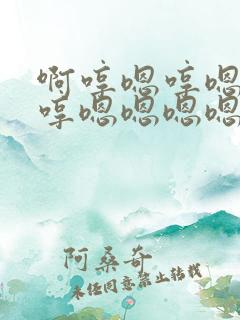 啊哼嗯哼嗯
哼嗯嗯嗯嗯
阿桑奇
未经同意禁止转载